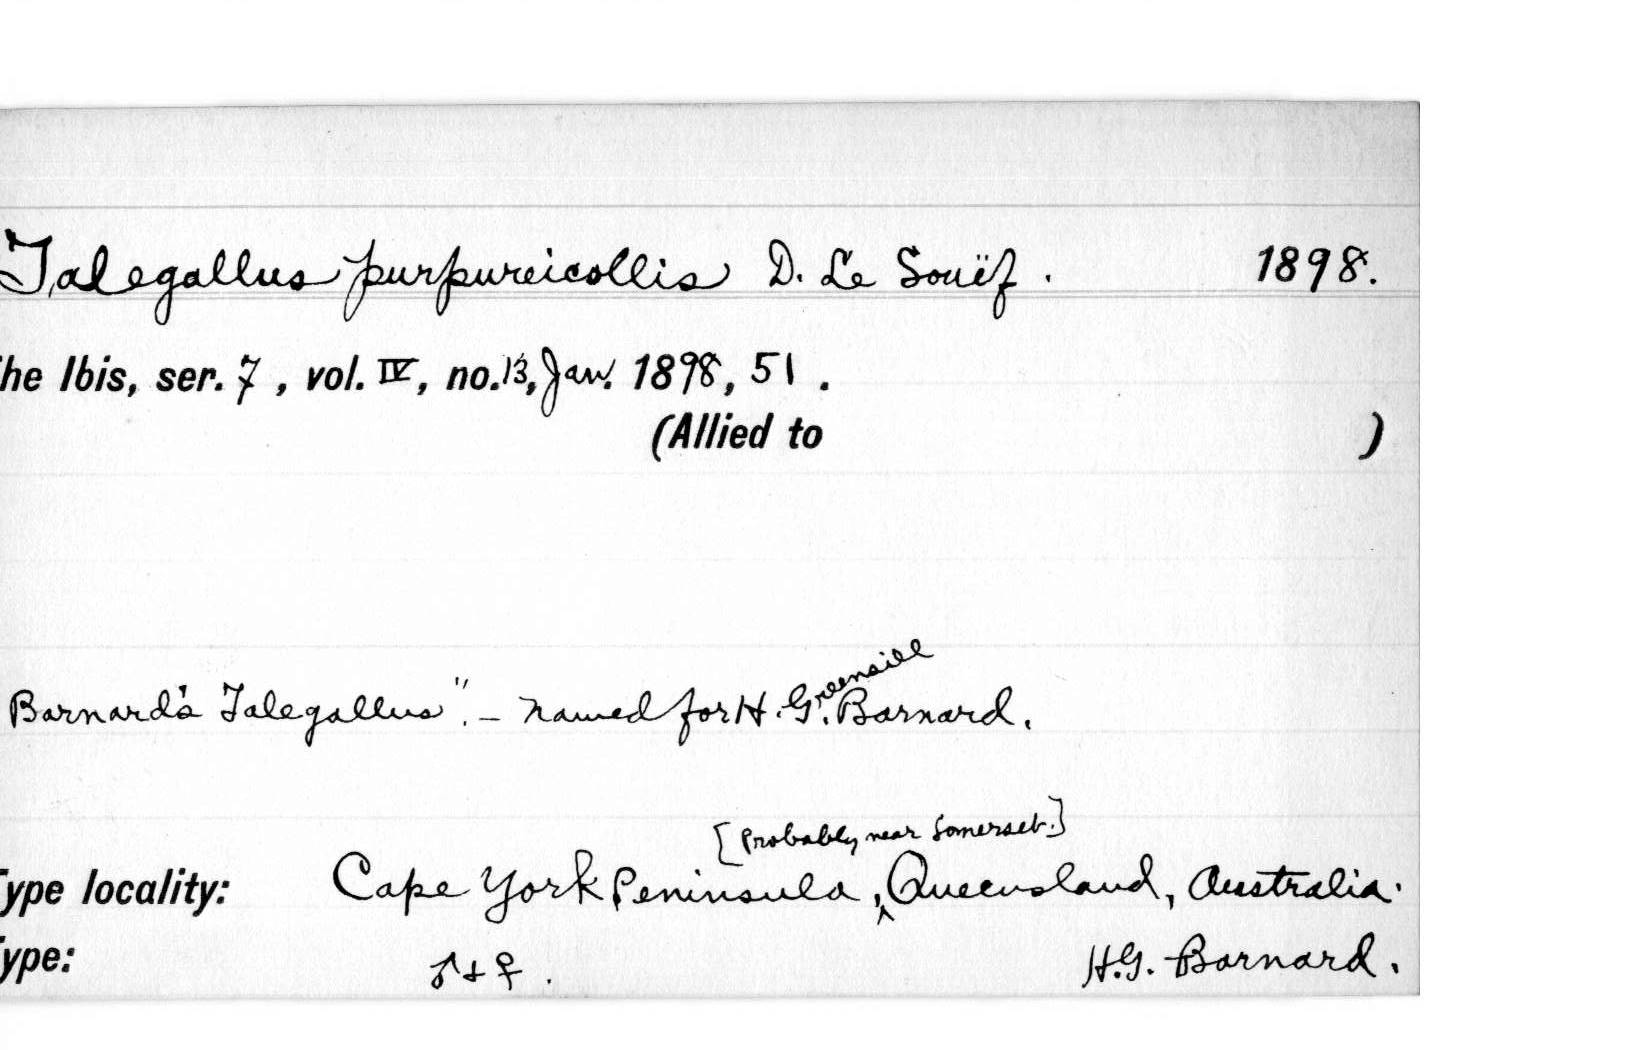 Talegallus purpureicollis D. Le Souëf. 1898.
he Ibis, ser. 7, vol. IV, no. 13, Jan. 1898, 51.
(Allied to )
Greensill
Barnard's Talegallus". - named for H. G. Barnard.
[Probably near Somerset.]
Type locality: Cape York Peninsula, ^ Queensland, Australia.
ype: ♂ + ♀. H.G. Barnard.